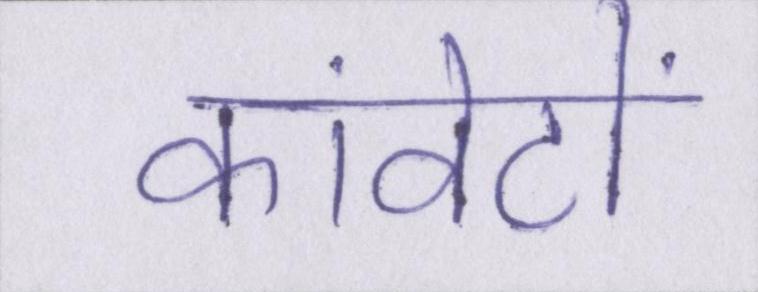 कांवेटों